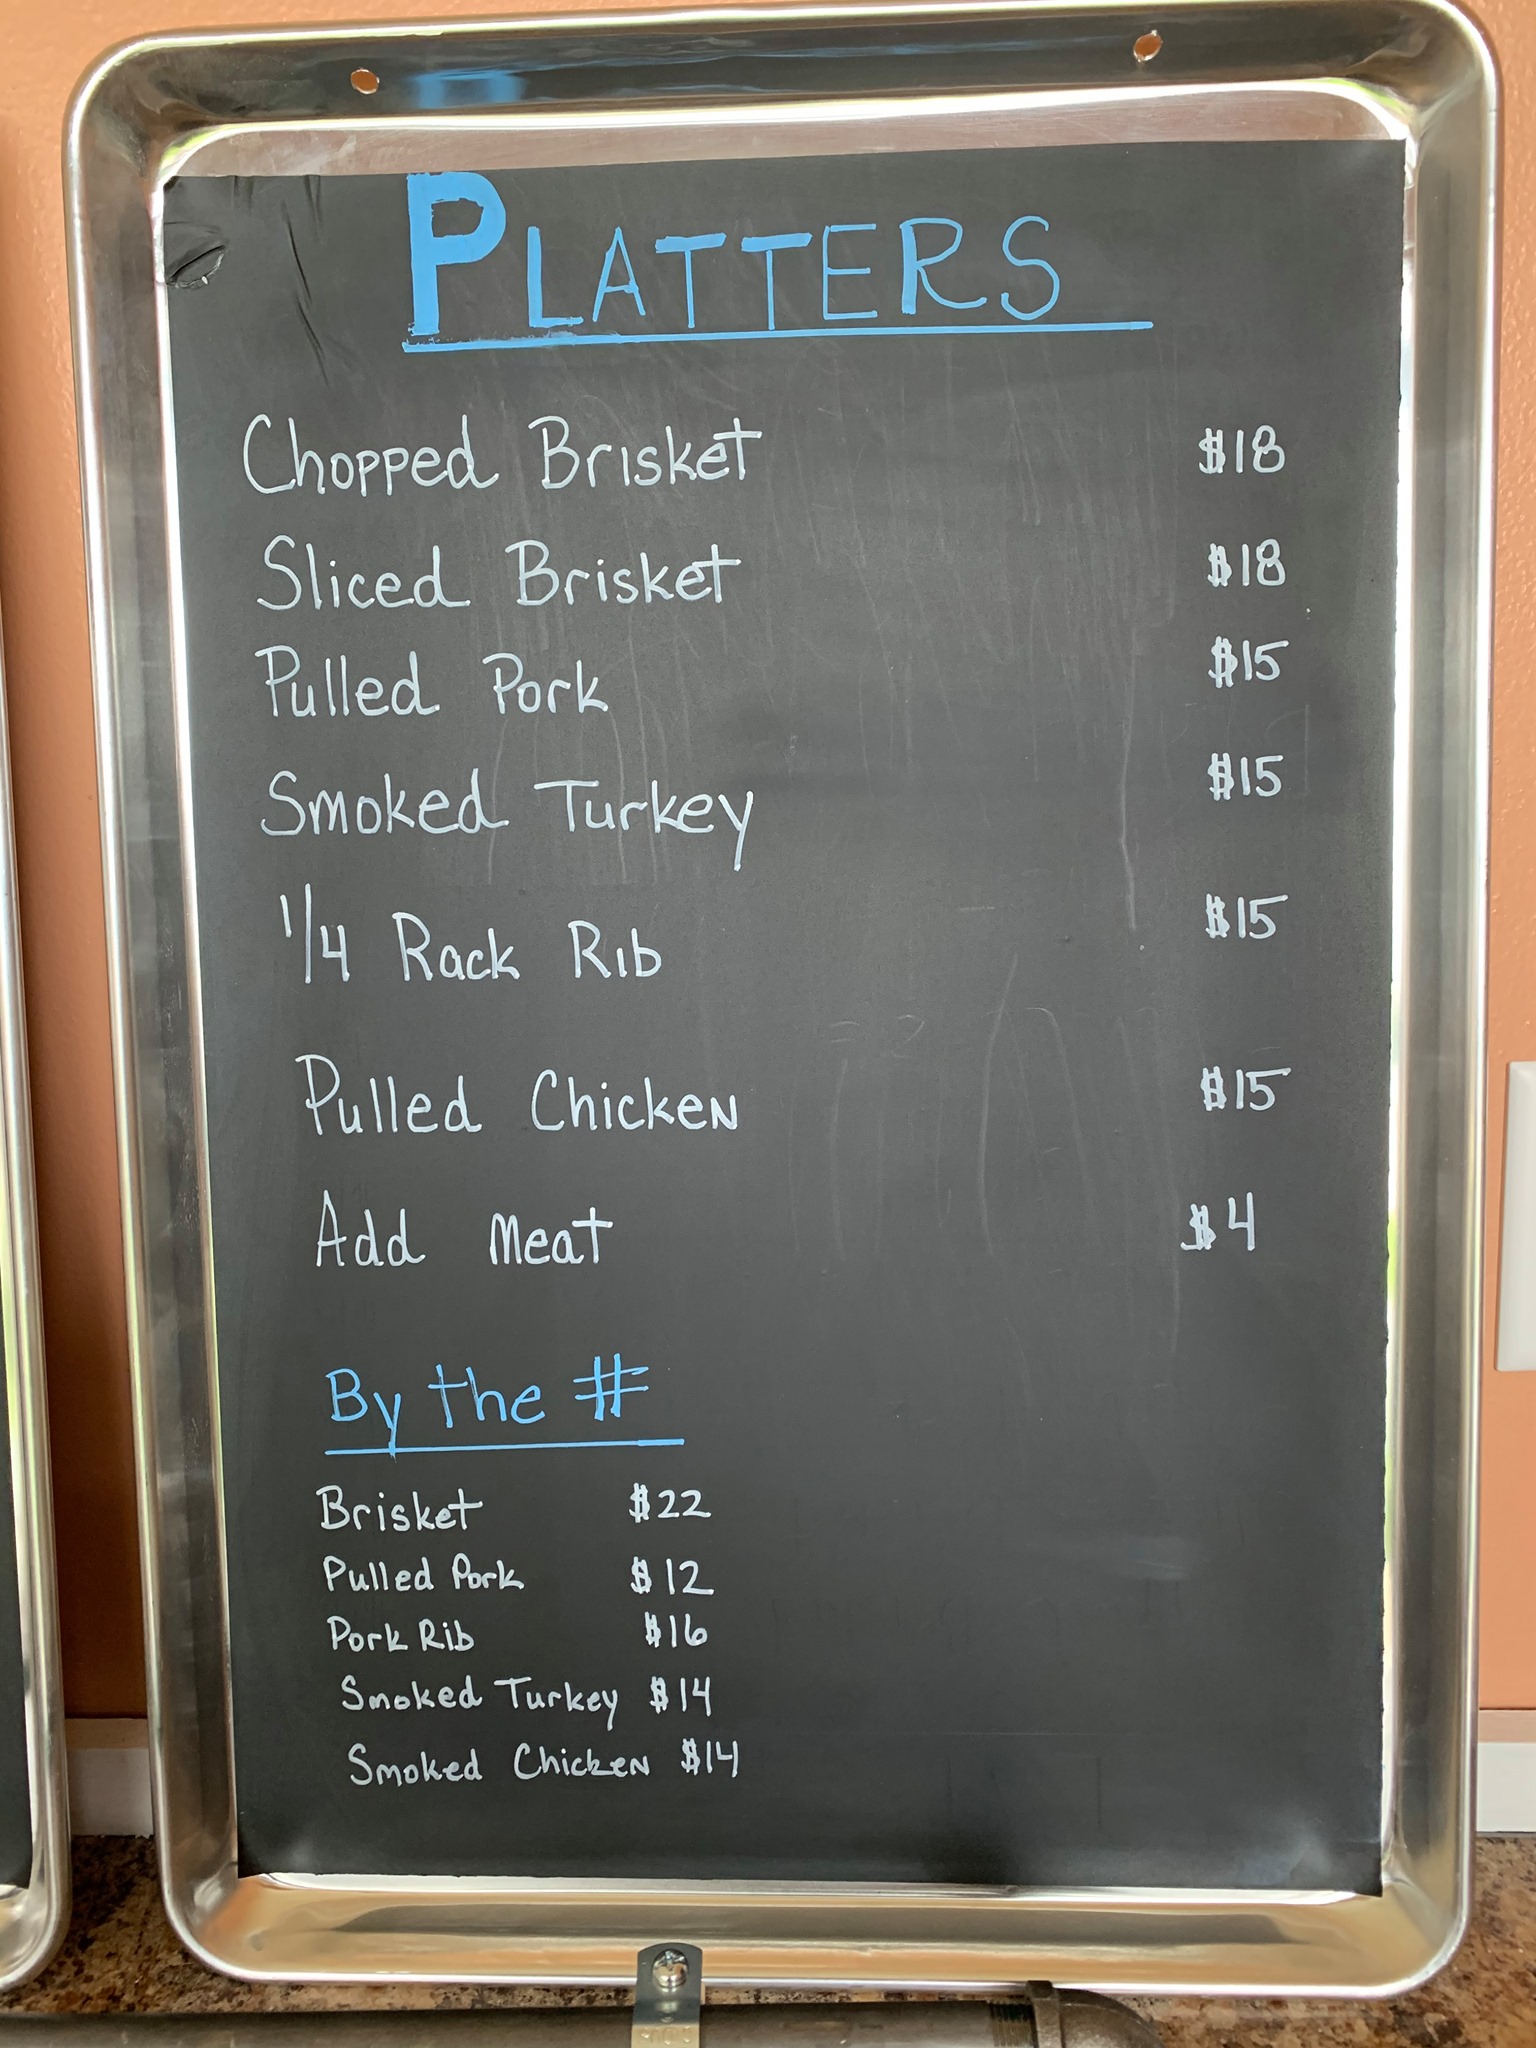 PLATTERS
Chopped Brisket $18
Sliced Brisket $18
Pulled Pork $15
Smoked Turkey $15
1/4 Rack Rib $15
Pulled Chicken $15
Add Meat $4
By the #
Brisket $22
Pulled Pork $12
Pork Rib $16
Smoked Turkey $14
Smoked Chicken $14